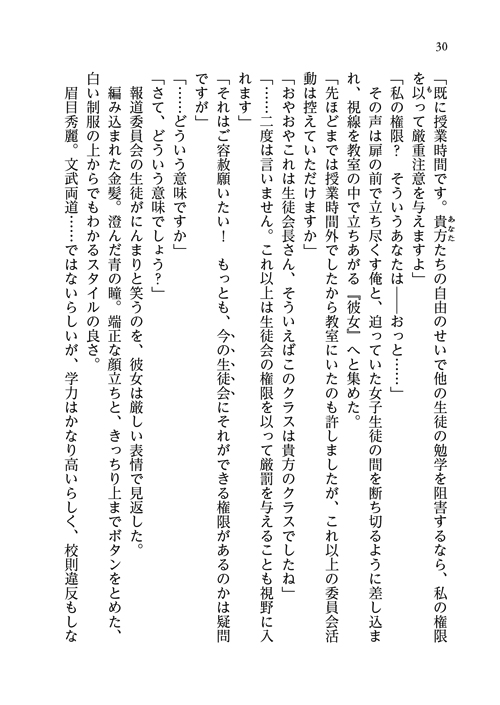 30
「既に授業時間です。貴方たちの自由のせいで他の生徒の勉学を阻害するなら、私の権限
を以って厳重注意を与えますよ」
「私の権限？　そういうあなたは――おっと……」
その声は扉の前で立ち尽くす俺と、迫っていた女子生徒の間を断ち切るように差し込ま
れ、視線を教室の中で立ちあがる『彼女』へと集めた。
「先ほどまでは授業時間外でしたから教室にいたのも許しましたが、これ以上の委員会活
動は控えていただけますか」
「おやおやこれは生徒会長さん、そういえばこのクラスは貴方のクラスでしたね」
「……二度は言いません。これ以上は生徒会の権限を以って厳罰を与えることも視野に入
れます」
「それはご容赦願いたい！　もっとも、今の生徒会にそれができる権限があるのかは疑問
ですが」
「……どういう意味ですか」
「さて、どういう意味でしょう？」
報道委員会の生徒がにんまりと笑うのを、彼女は厳しい表情で見返した。
編み込まれた金髪。澄んだ青の瞳。端正な顔立ちと、きっちり上までボタンをとめた、
白い制服の上からでもわかるスタイルの良さ。
眉目秀麗。文武両道……ではないらしいが、学力はかなり高いらしく、校則違反もしな